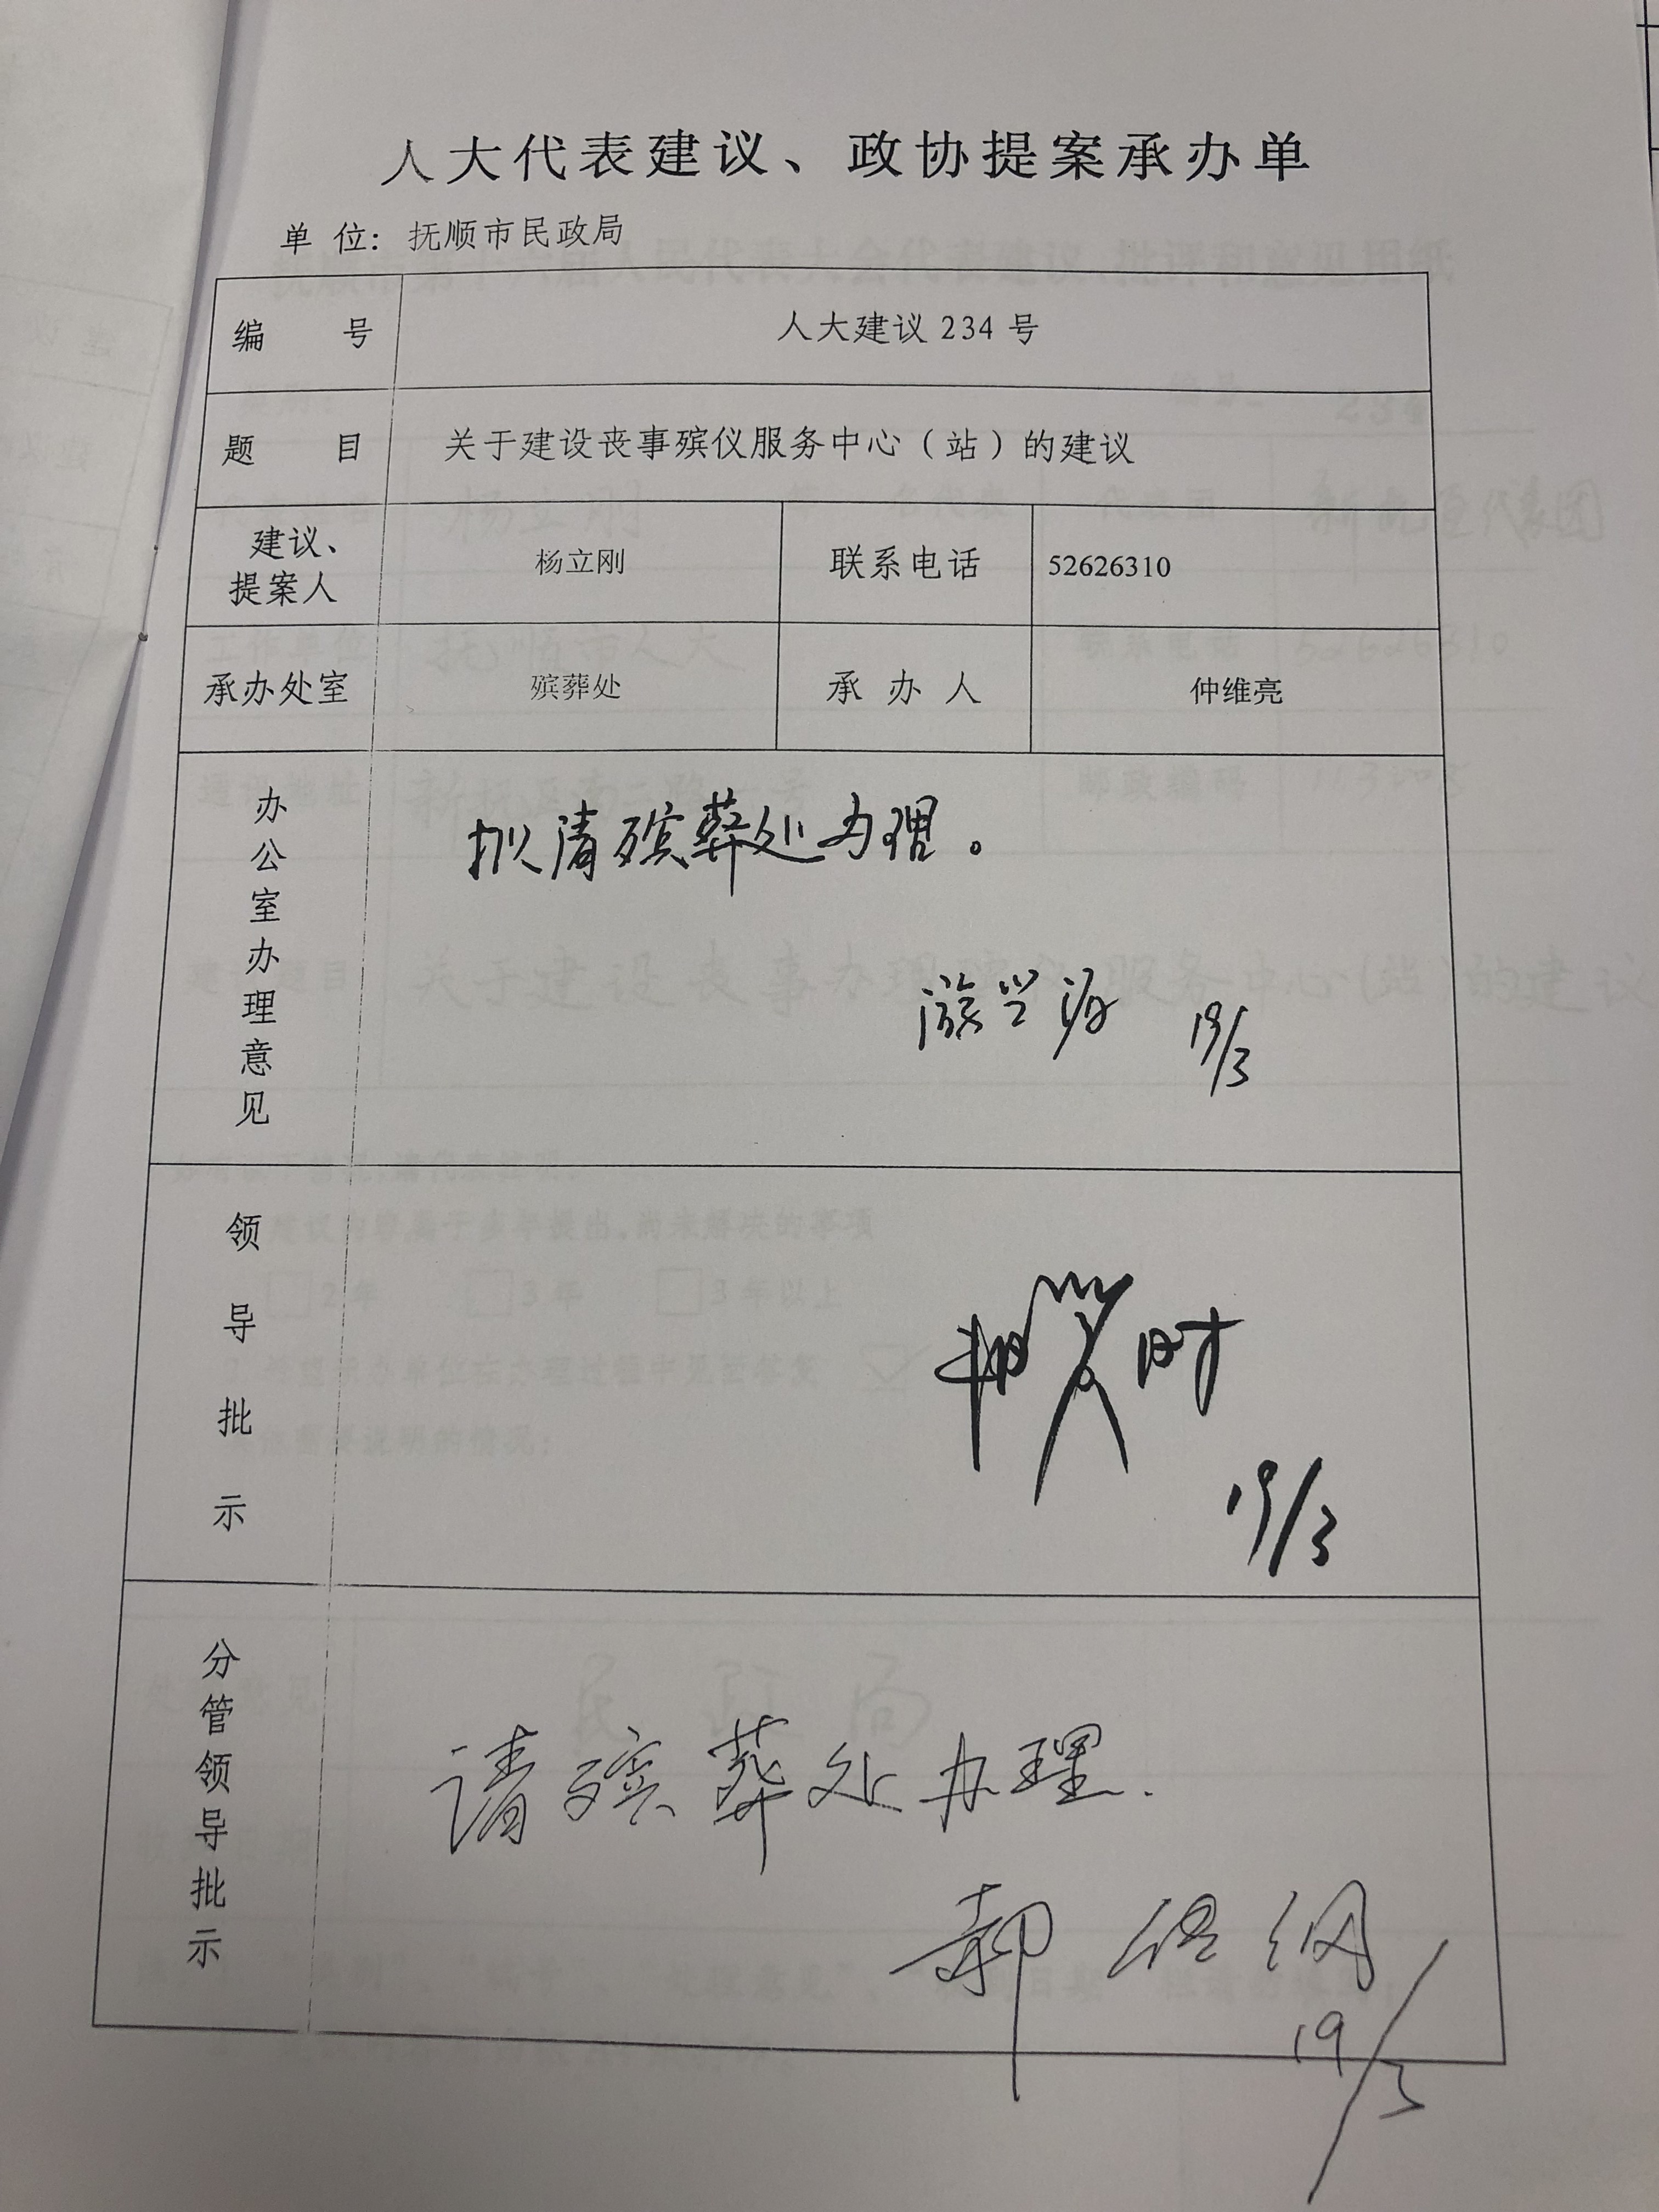 人大代表建议、政协提案承办单
单 位：抚顺市民政局
编 号 人大建议 234 号
题 目 关于建设丧事殡仪服务中心（站）的建议
建议、提案人 杨立刚 联系电话 52626310
承办处室 殡葬处 承 办 人 仲维亮
办公室办理意见
拟请殡葬处办理。
19/3
领导批示
19/3
分管领导批示
请殡葬处办理.
19/3